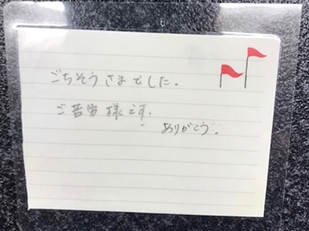 ごちそうさまでした。
ご苦労様です。
ありがとう。